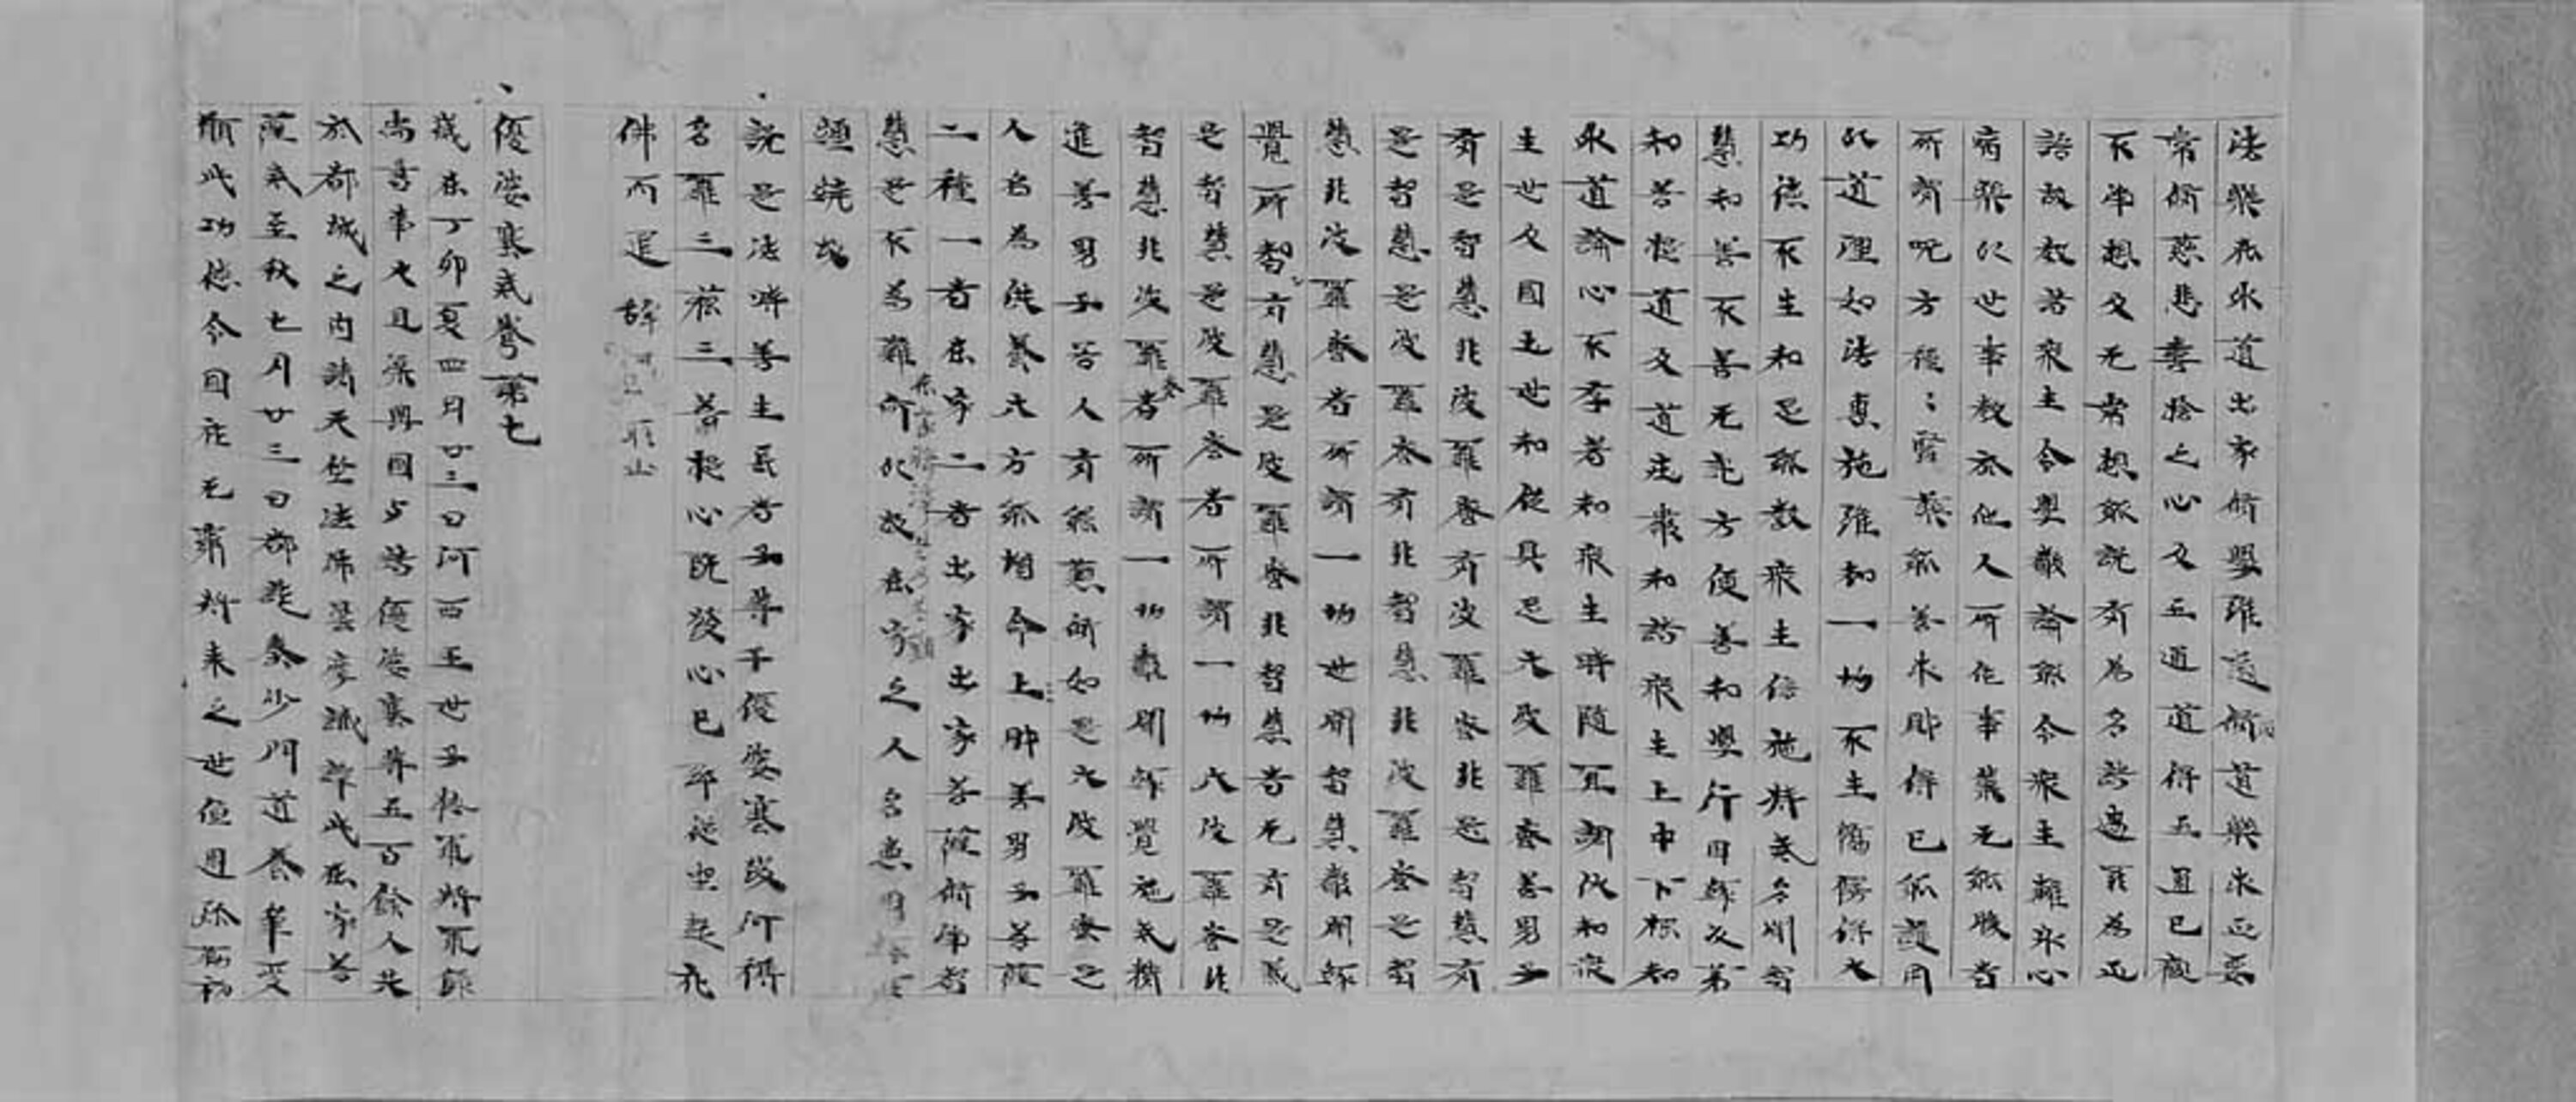 法樂於求道出家修學雖復修道樂求正要
常修慈悲喜捨之心又五通道得五通已觀
不淨想又无常想能說有為名諸過罪為正
語故教諸眾生令學聲論能令眾生離身心
病樂以世事教於他人所作事業无能勝者
所謂呪方種々醫藥能善求財得已能護用
以道理如法惠施雖知一切不生憍慢得大
功德不生知足能教眾生信施持戒多聞智
慧知善不善无記方便善知學行因緣次第
知菩提道及道莊嚴知諸眾生上中下根知
外道論心不存著知眾生時隨宜調伏知眾
生世及國土世和從具足六波羅蜜善男子
有是智慧非波羅蜜有波羅蜜非是智慧有
是智慧是波羅蜜有非智慧非波羅蜜是智
慧非波羅蜜者所謂一切世間智慧聲聞緣
覺所智有慧是波羅蜜非智慧者无有是義
是智慧是波羅蜜者所謂一切六波羅蜜非
智慧非波羅蜜者所謂一切聲聞緣覺施戒精
進善男子若人有能懃脩如是六波羅蜜是
人名為供養六方能增命上財善男子菩薩
二種一者在家二者出家出家菩薩修淨智
慧是不為難何以故在家之人多惡因緣所
纏繞故
說是法時善生長者子等千優婆塞發阿耨
多羅三藐三菩提心既發心已即從坐起禮
佛而退辭
優婆塞戒卷第七
歲在丁卯夏四月廿三日河西王世子撫軍將軍錄
尚書事大且渠興國與諸優婆塞等五百餘人共
於都城之內請天竺法師曇摩讖譯此在家菩
薩戒至秋七月廿三日都訖秦沙門道養筆受
願此功德令國祚无窮將來之世值遇彌勒初